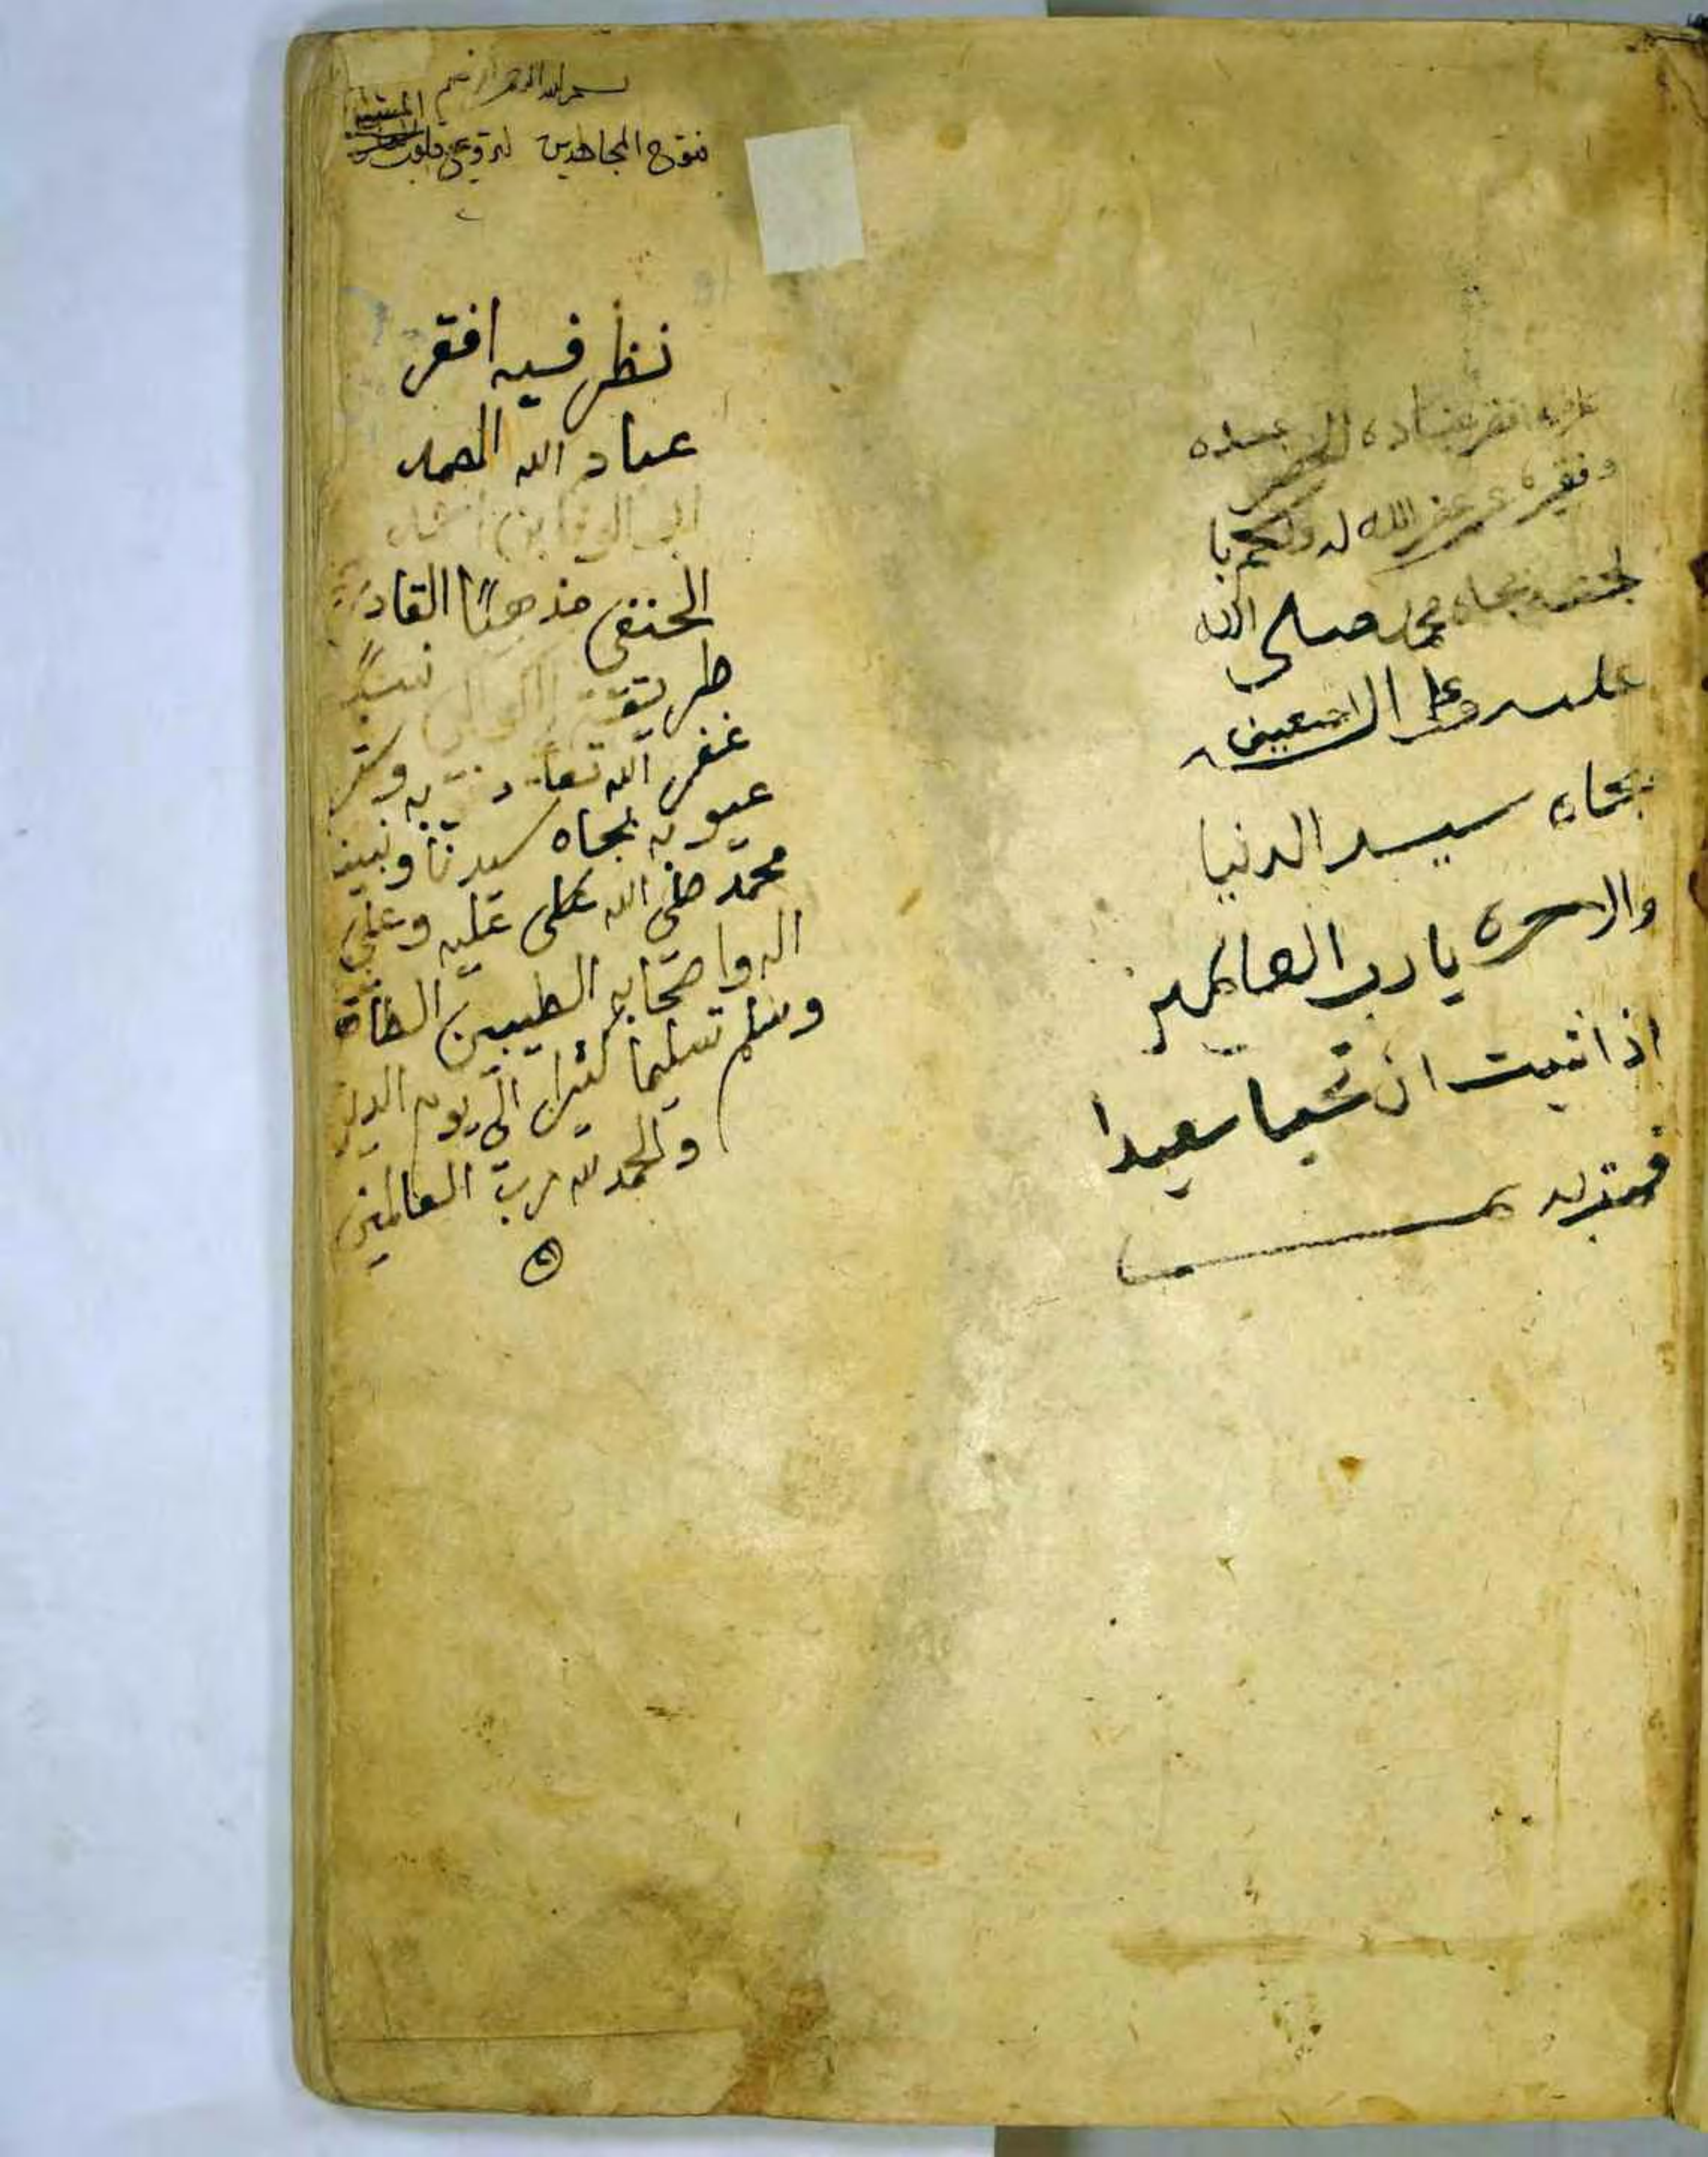 بسم الله الرحمن الرحيم
فتوح المجاهدين لترويح قلوب
نظر فيه افقر
عباد الله الصمد
ابي الوفا بن
الحنفي مذهبًا القادري
طريقة نسبًا
غفر الله تعالى ذنوبه وستر
عيوبه بجاه سيدنا ونبينا
محمد صلى الله تعالى عليه وعلى
اله واصحابه الطيبين الطاهرين
وسلم تسليما كثيرا الى يوم الدين
والحمد لله رب العالمين
افقر عباده الى
عبده
وفقيره غفر الله له ولكم با
لجنه بجاه محمد صلى الله
عليه وعلى اله اجمعين
بجاه سيد الدنيا
والاخره يارب العالمين
اذا شيت ان تحيا سعيدا